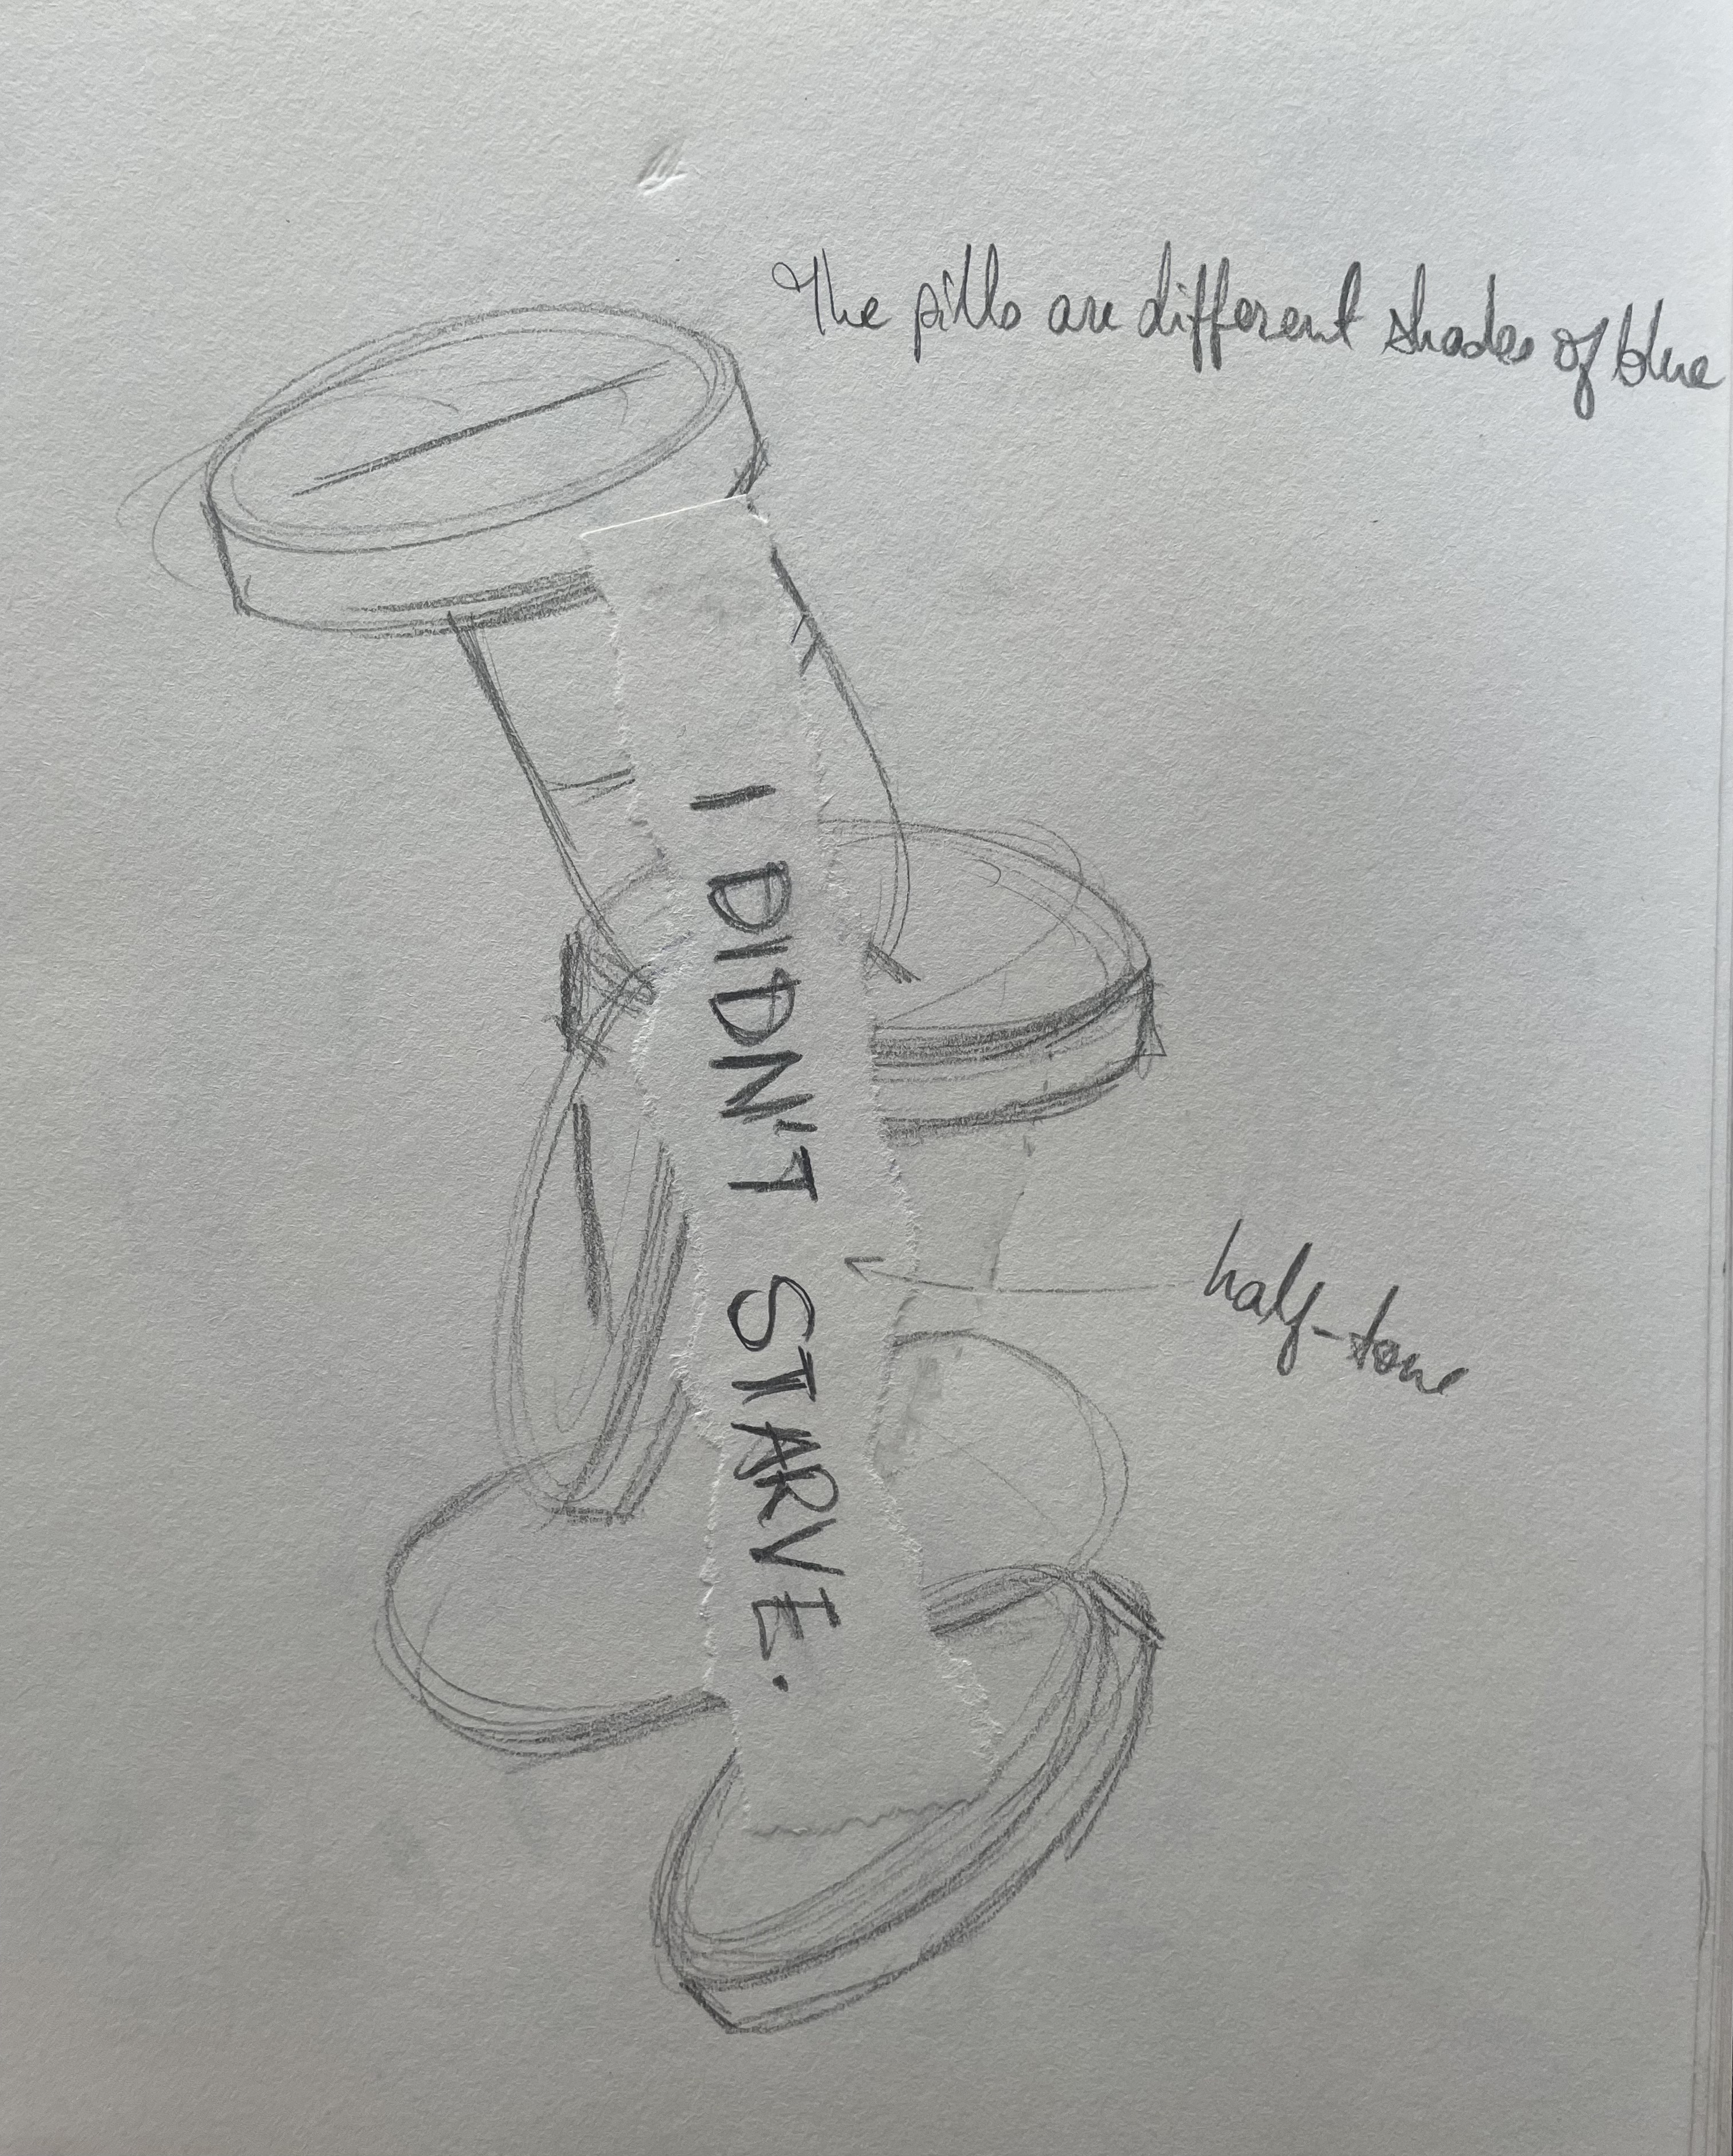 The pills are different shades of blue
I DIDN'T STARVE.
half-tone